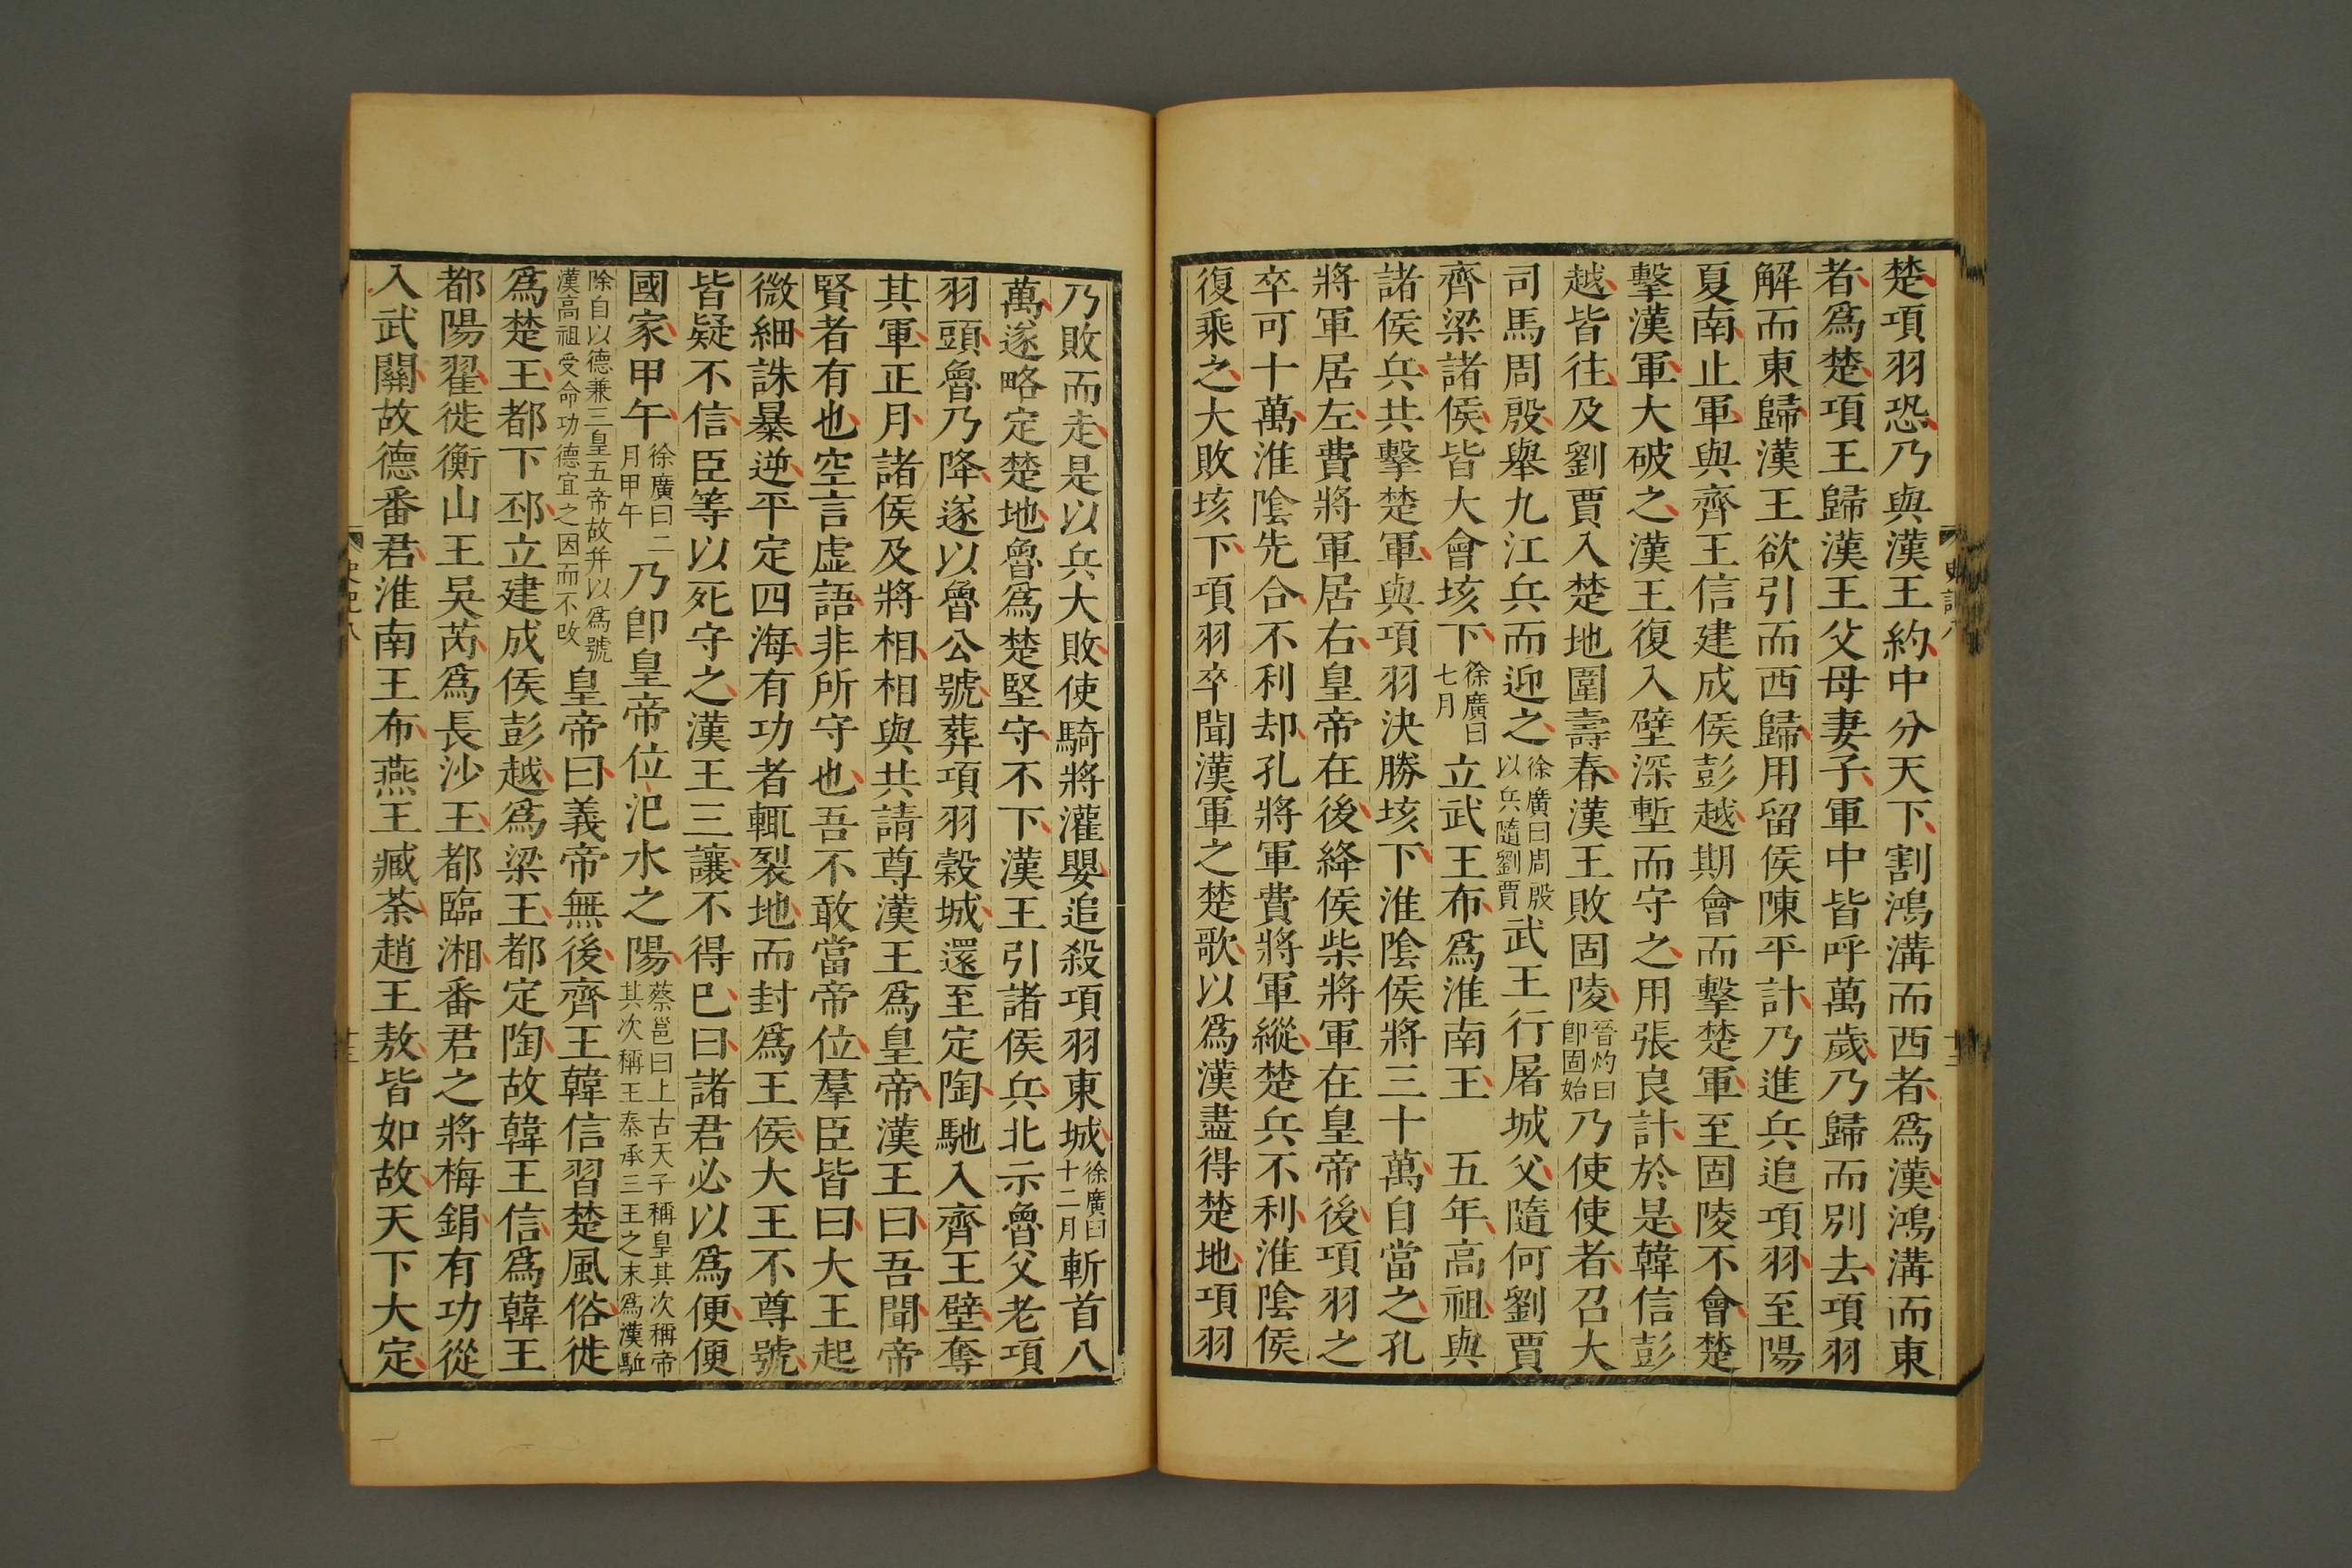 楚項羽恐乃與漢王約中分天下割鴻溝而西者爲漢鴻溝而東
者爲楚項王歸漢王父母妻子軍中皆呼萬歲乃歸而別去項羽
解而東歸漢王欲引而西歸用留侯陳平計乃進兵追項羽至陽
夏南止軍與齊王信建成侯彭越期會而擊楚軍至固陵不會楚
擊漢軍大破之漢王復入壁深塹而守之用張良計於是韓信彭
越皆往及劉賈入楚地圍壽春漢王敗固陵晉灼曰卽固始乃使使者召大
司馬周殷舉九江兵而迎之徐廣曰周殷以兵隨劉賈武王行屠城父隨何劉賈
齊梁諸侯皆大會垓下徐廣曰七月立武王布爲淮南王 五年高祖與
諸侯兵共擊楚軍與項羽決勝垓下淮陰侯將三十萬自當之孔
將軍居左費將軍居右皇帝在後絳侯柴將軍在皇帝後項羽之
卒可十萬淮陰先合不利却孔將軍費將軍縱楚兵不利淮陰侯
復乘之大敗垓下項羽卒聞漢軍之楚歌以爲漢盡得楚地項羽
乃敗而走是以兵大敗使騎將灌嬰追殺項羽東城徐廣曰十二月斬首八
萬遂略定楚地魯爲楚堅守不下漢王引諸侯兵北示魯父老項
羽頭魯乃降遂以魯公號葬項羽穀城還至定陶馳入齊王壁奪
其軍正月諸侯及將相相與共請尊漢王爲皇帝漢王曰吾聞帝
賢者有也空言虛語非所守也吾不敢當帝位羣臣皆曰大王起
微細誅暴逆平定四海有功者輒裂地而封爲王侯大王不尊號
皆疑不信臣等以死守之漢王三讓不得已曰諸君必以爲便便
國家甲午徐廣曰二月甲午乃卽皇帝位汜水之陽蔡邕曰上古天子稱皇其次稱帝其次稱王秦承三王之末爲漢駈
除自以德兼三皇五帝故幷以爲號漢高祖受命功德宜之因而不改皇帝曰義帝無後齊王韓信習楚風俗徙
爲楚王都下邳立建成侯彭越爲梁王都定陶故韓王信爲韓王
都陽翟徙衡山王吳芮爲長沙王都臨湘番君之將梅鋗有功從
入武關故德番君淮南王布燕王臧荼趙王敖皆如故天下大定